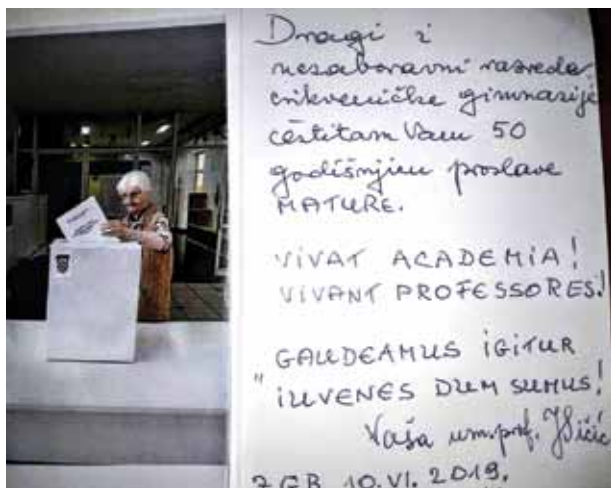 Dragi i
nezaboravni razrede
crikveničke gimnazije
čestitam Vam 50
godišnjicu proslave
MATURE.
VIVAT ACADEMIA!
VIVANT PROFESSORES!
GAUDEAMUS IGITUR
" IUVENES DUM SUMUS!
Vaša um. prof.
ZGB. 10.VI. 2019.